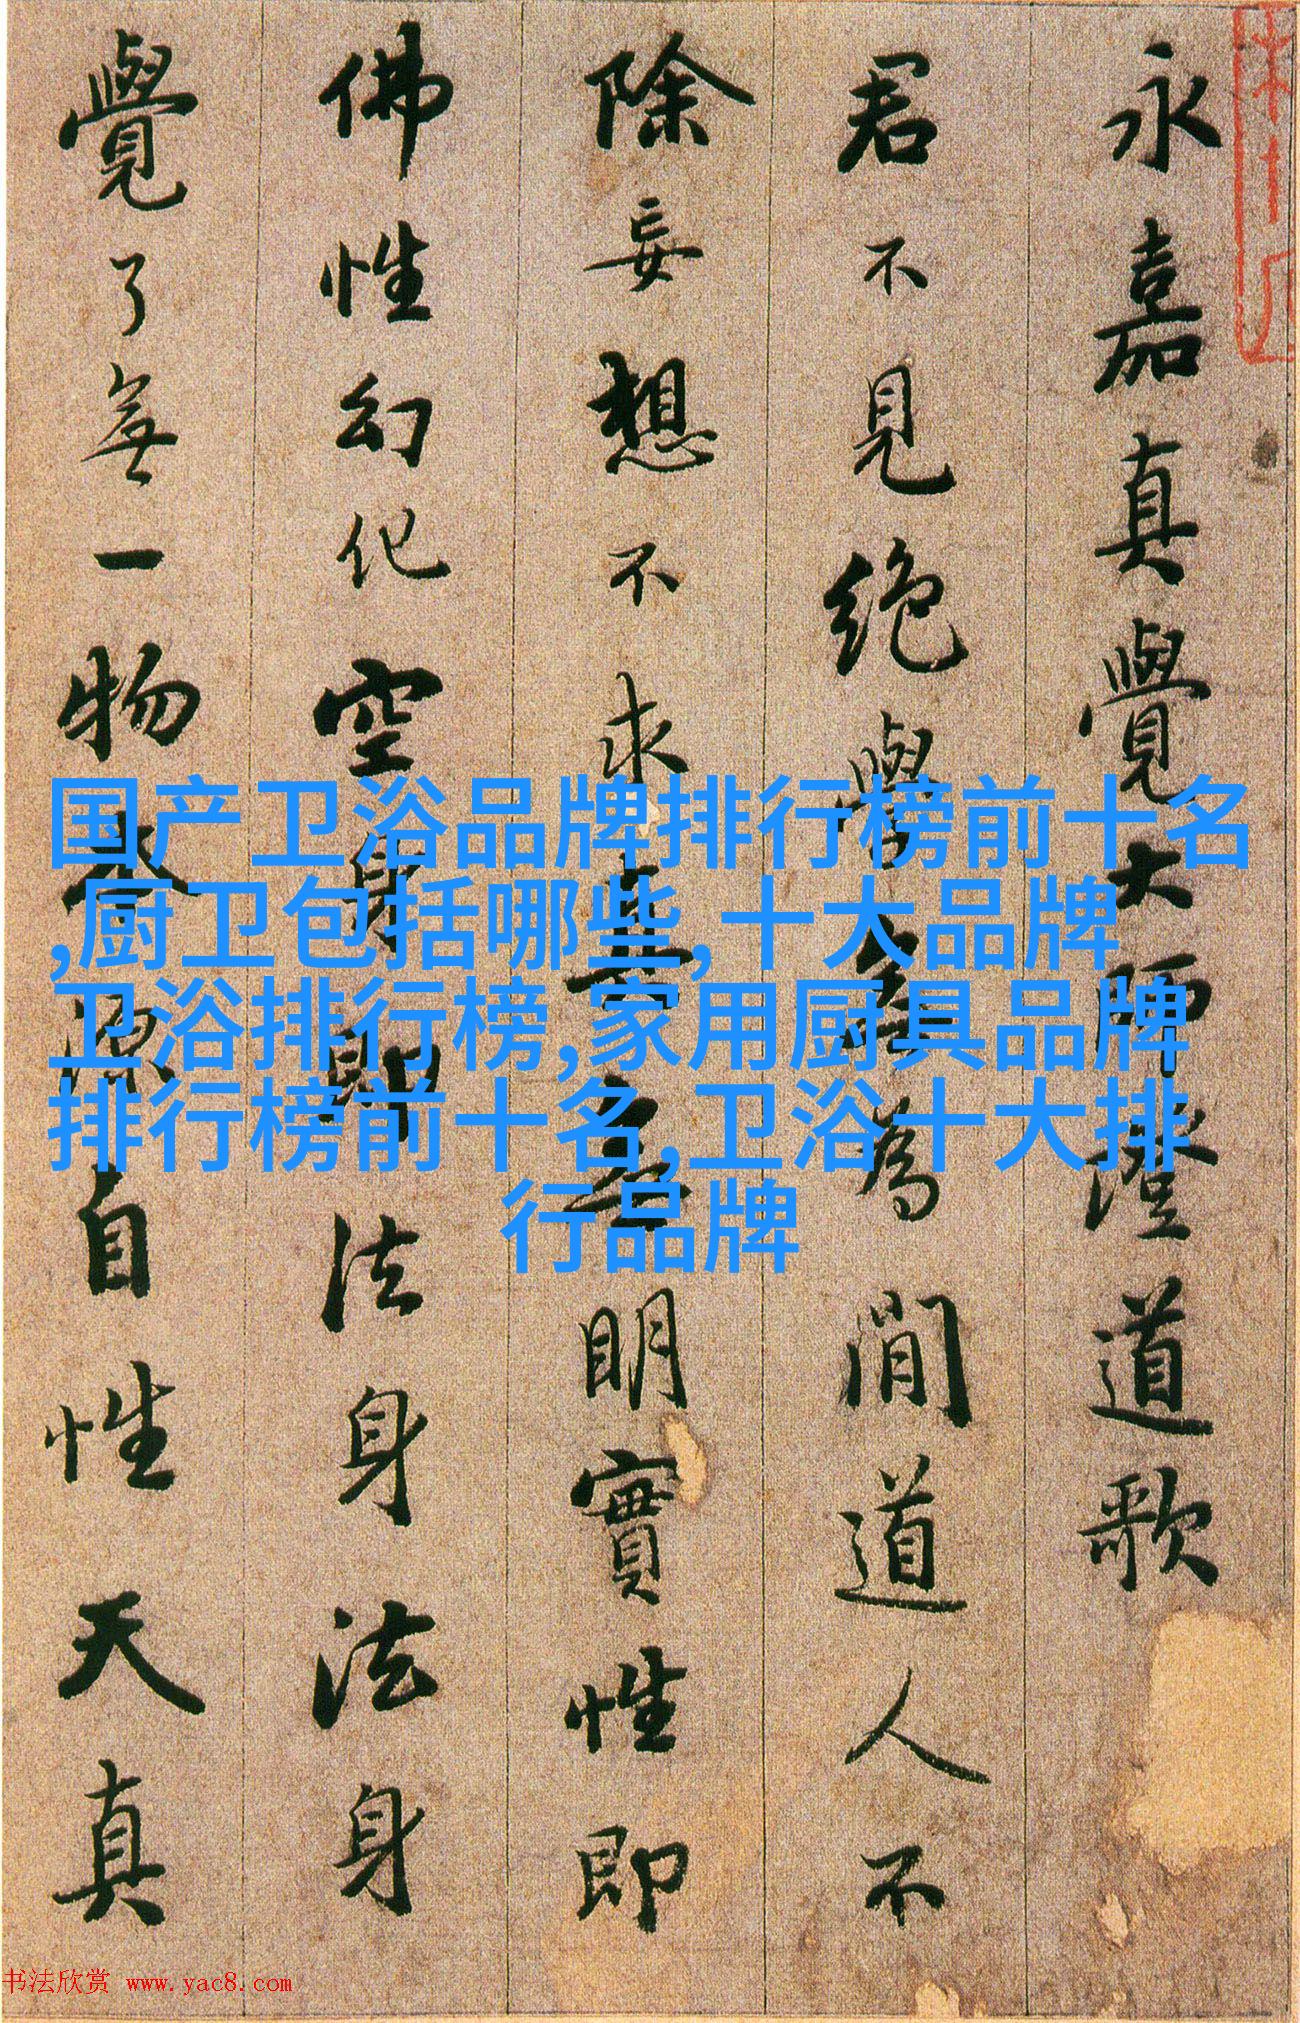 永嘉真覺大師證道歌
君不見絕學無為閒道人不
除妄想不求真無明實性即
佛性幻化空身即法身法身
覺了無一物本源自性天真
国产卫浴品牌排行榜前十名
,厨卫包括哪些,十大品牌
卫浴排行榜,家用厨具品牌
排行榜前十名,卫浴十大排
行品牌
书法欣赏 www.yac8.com